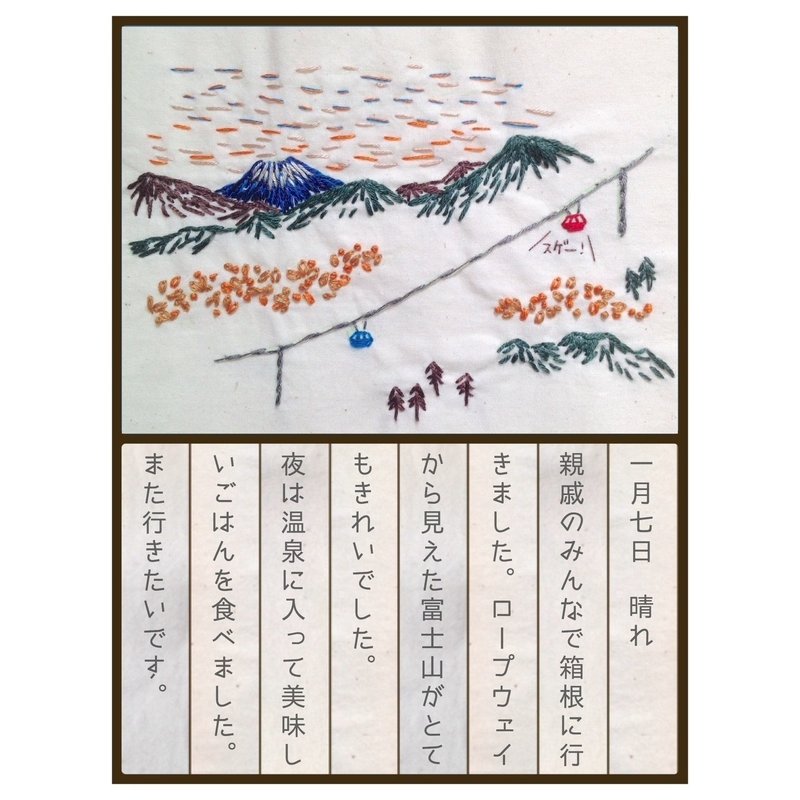 スゲー！
一月七日　晴れ
親戚のみんなで箱根に行
きました。ロープウェイ
から見えた富士山がとて
もきれいでした。
夜は温泉に入って美味し
いごはんを食べました。
また行きたいです。